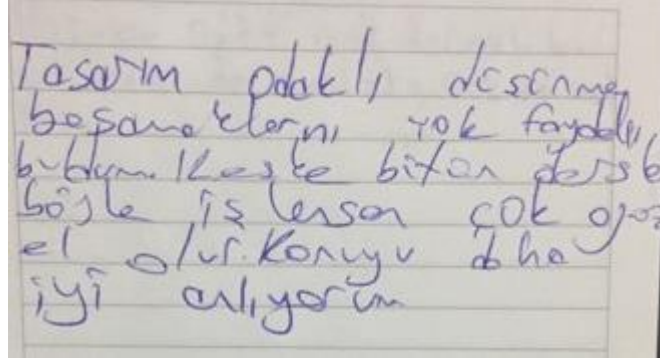 Tasarım odaklı düşünme
basamaklarını çok faydalı
buldum. Keşke bütün ders
böyle işlense çok
el olur. Konuyu daha
iyi anlıyorum